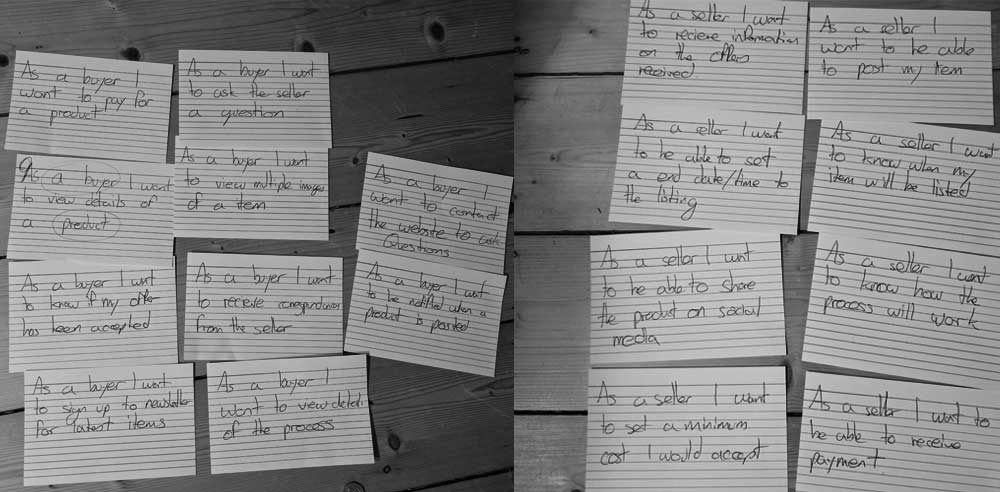 As a buyer I
want to pay for
a product
As a buyer I want
to ask the seller
a question
As a buyer I want
to view details of
a product
As a buyer I want
to view multiple images
of a item
As a buyer I
want to contact
the website to ask
Questions
As a buyer I want
to know if my offer
has been accepted
As a buyer I want
to receive
from the seller
As a buyer I want
to be notified when a
product is posted
As a buyer I want
to sign up to newsletter
for latest items
As a buyer I
want to view details
of the process
As a seller I want
to recieve information
on the offers
received
As a seller I
want to be able
to post my item
As a seller I want
to be able to set
a end date/time to
the listing
As a seller I want
to know when my
item will be listed
As a seller I want
to be able to share
the product on social
media
As a seller I want
to know how the
process will work
As a seller I want
to set a minimum
cost I would accept
As a seller I want to
be able to receive
payment